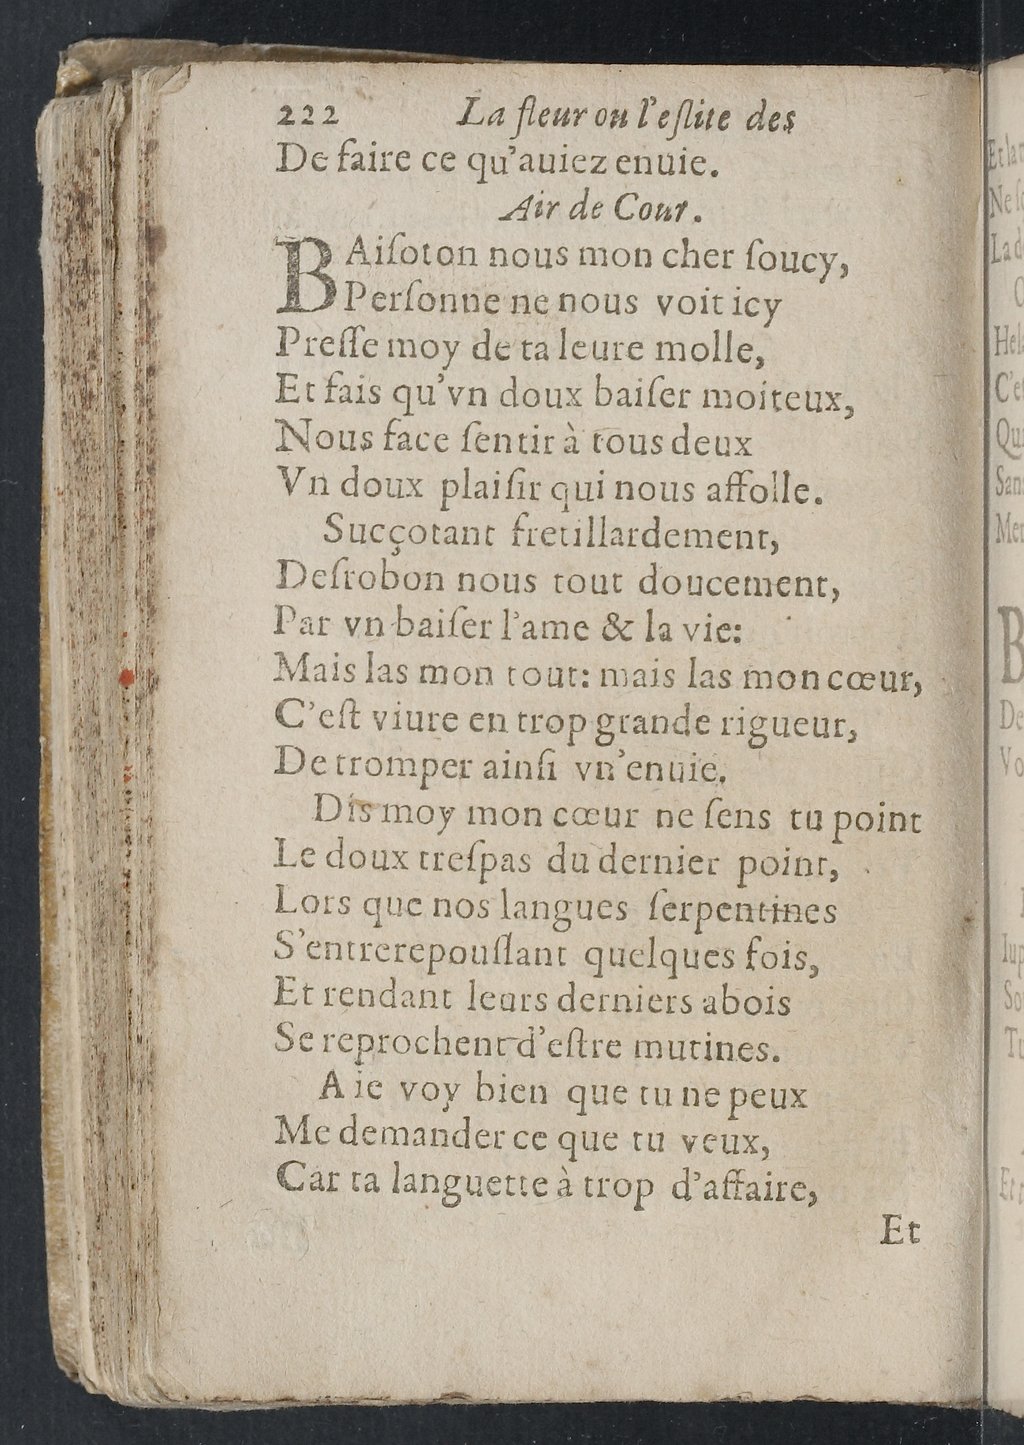 222 La fleur ou l'eſlite des
De faire ce qu'auiez enuie.
Air de Cour.
BAiſoton nous mon cher ſoucy,
Perſonne ne nous voit icy
Preſſe moy de ta leure molle,
Et fais qu'vn doux baiſer moiteux,
Nous face ſentir à tous deux
Vn doux plaiſir qui nous affolle.
Sucçotant fretillardement,
Deſrobon nous tout doucement,
Par vn baiſer l'ame & la vie:
Mais las mon tout: mais las mon cœur,
C'eſt viure en trop grande rigueur,
De tromper ainſi vn'enuie.
Dis moy mon cœur ne ſens tu point
Le doux treſpas du dernier point,
Lors que nos langues ſerpentines
S'entrerepouſſant quelques fois,
Et rendant leurs derniers abois
Se reprochent d'eſtre mutines.
A ie voy bien que tu ne peux
Me demander ce que tu veux,
Car ta languette à trop d'affaire,
Et